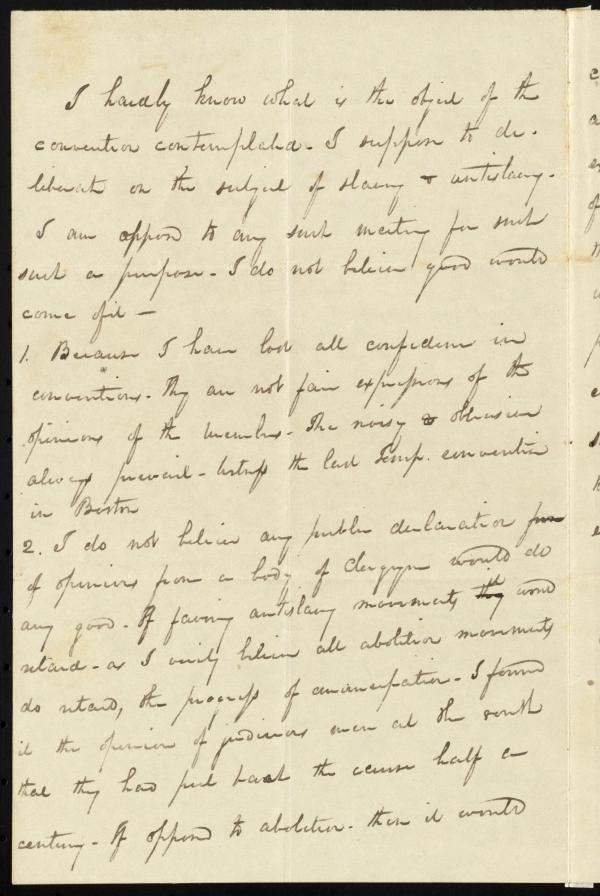 I hardly know what is the object of the
convention contemplated - I suppose to de-
liberate on the subject of slavery & antislavery -
I am opposed to any such meeting for such
such a purpose - I do not believe good would
come of it —
1. Because I have lost all confidence in
conventions - They are not fair expressions of the
opinions of the members - The noisy & obtrusive
always prevail - witness the last Temp. convention
in Boston
2. I do not believe any public declaration
of opinions from a body of Clergymen would do
any good - If favoring antislavery movements it would
retard - as I verily believe all abolition movements
do retard, the progress of emancipation - I found
it the opinion of judicious men at the south
that they had put back the cause half a
century - If opposed to abolition - then it would